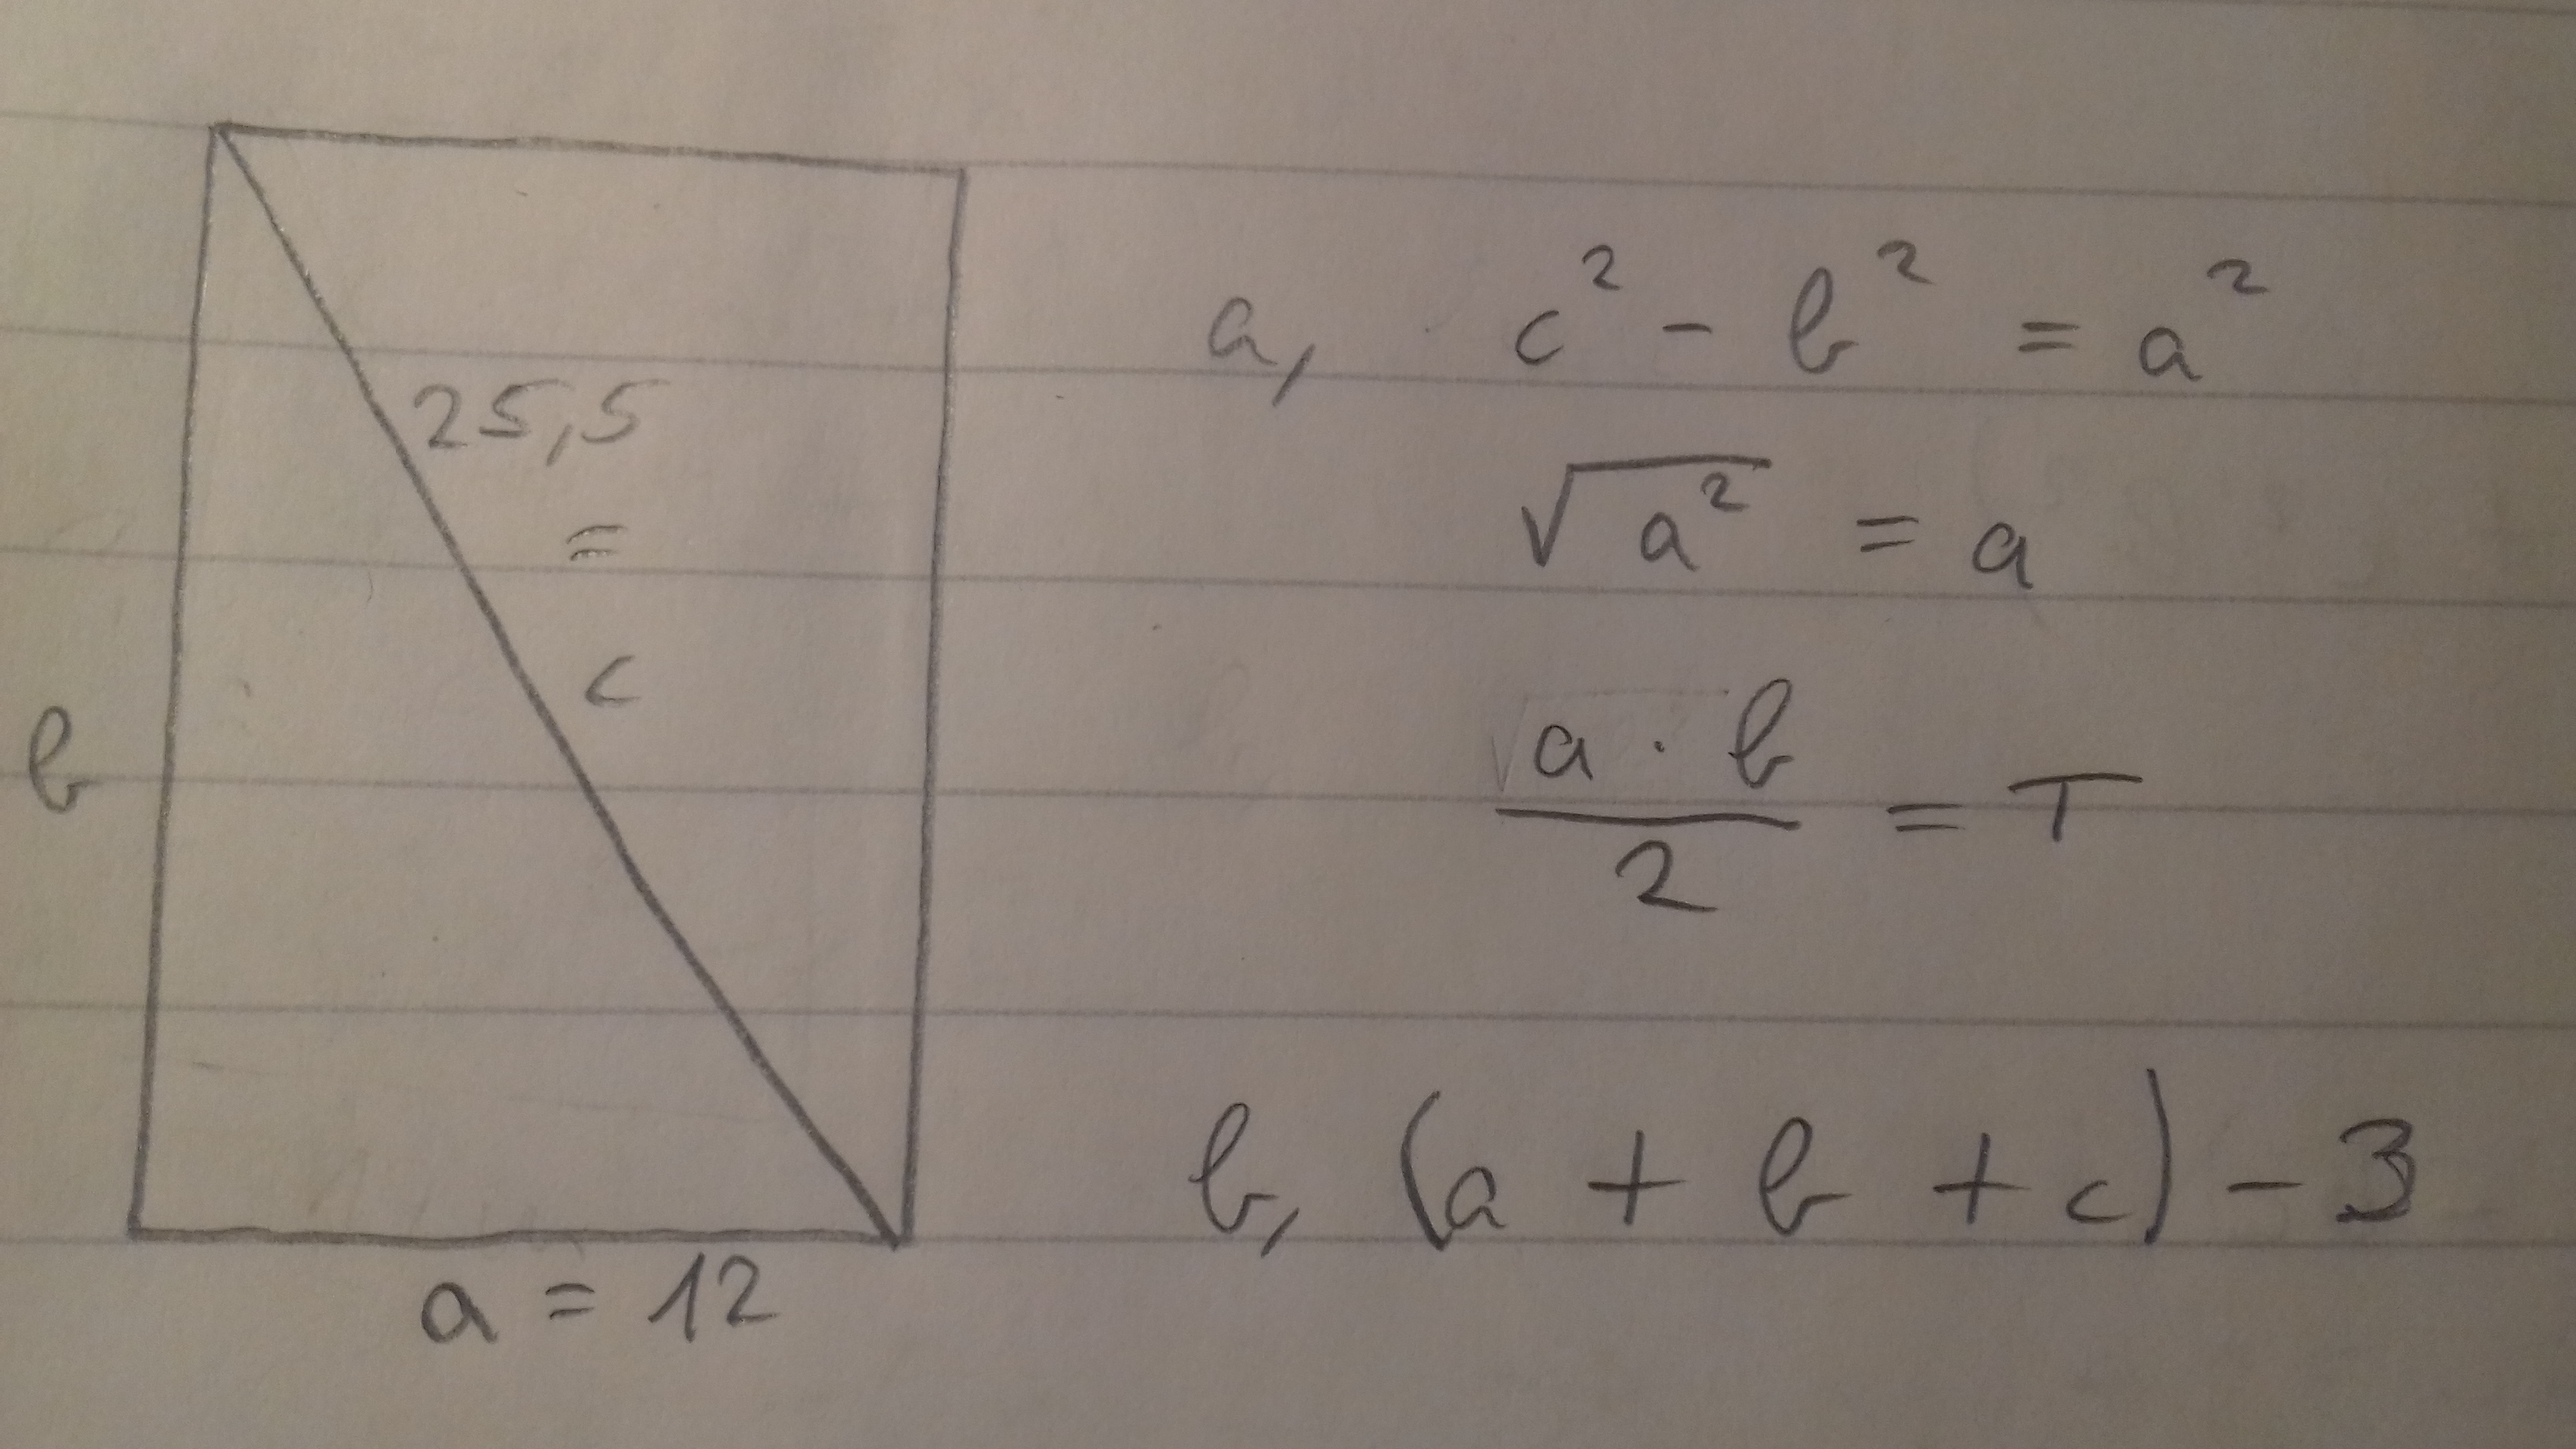 25,5
=
c
b
a = 12
a, c² - b² = a²
√a² = a
a · b / 2 = T
b, (a + b + c) - 3